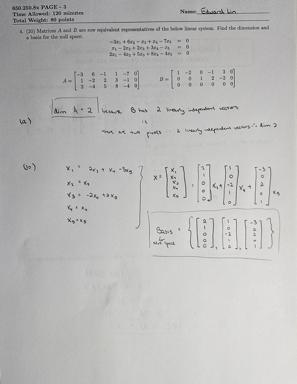 650.250.8s PAGE - 3
Time Allowed: 120 minutes
Total Weight: 80 points
Name: Edward Lin
4. (20) Matrices A and B are row equivalent representatives of the below linear system. Find the dimension and
a basis for the null space.
-3x₁ + 6x₂ - x₃ + x₄ - 7x₅ = 0
x₁ - 2x₂ + 2x₃ + 3x₄ - x₅ = 0
2x₁ - 4x₂ + 5x₃ + 8x₄ - 4x₅ = 0
A = [-3 6 -1 1 -7 0
1 -2 2 3 -1 0
B = [1 -2 0 -1 3 0
0 0 1 2 -2 0
0 0 0 0 0 0]
(a)
dim A = 2 because B has 2 linearly independent vectors
is
there are two pivots ∴ 2 linearly independent vectors ∴ dim 2
(b)
x₁ = 2x₂ + x₄ - 3x₅
x₃ = -2x₄ + 2x₅
x₄ = x₄
x₅ = x₅
Basis =
Null Space